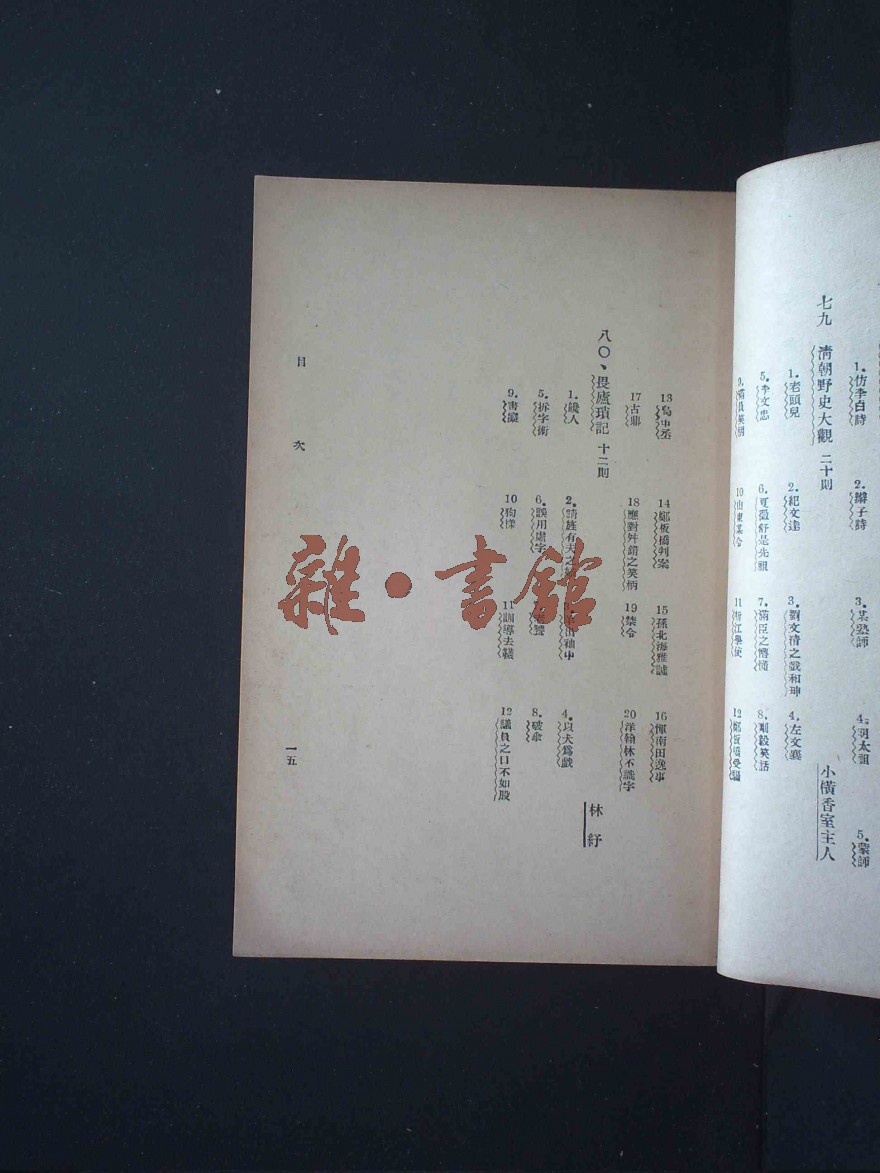 1. 仿李白詩　2. 辮子詩　3. 某塾師　4. 明太祖　5. 蒙師
七九　清朝野史大觀　二十則　小橫香室主人
1. 老頭兒　2. 紀文達　3. 劉文清之戲和珅　4. 左文襄
5. 李文忠　6. 夏徵舒是先祖　7. 滿臣之懵懂　8. 剛毅笑話
9.　10 山東某令　11 浙江學使　12 鄭板橋受騙
13　14 鄭板橋判案　15 孫北海雅謔　16 惲南田逸事
17 古鼎　18 應對舛錯之笑柄　19 禁令　20 洋翰林不識字
八〇、畏廬瑣記　十二則　林紓
1. 饞人　2. 請旌有夫之　出袖中　4. 以犬爲戲
5. 拆字術　6. 誤用虛字　8. 破傘
9. 書癡　10 狗樣　11 訓導去襪　12 議員之口不如股
目次
一五
雜·書館